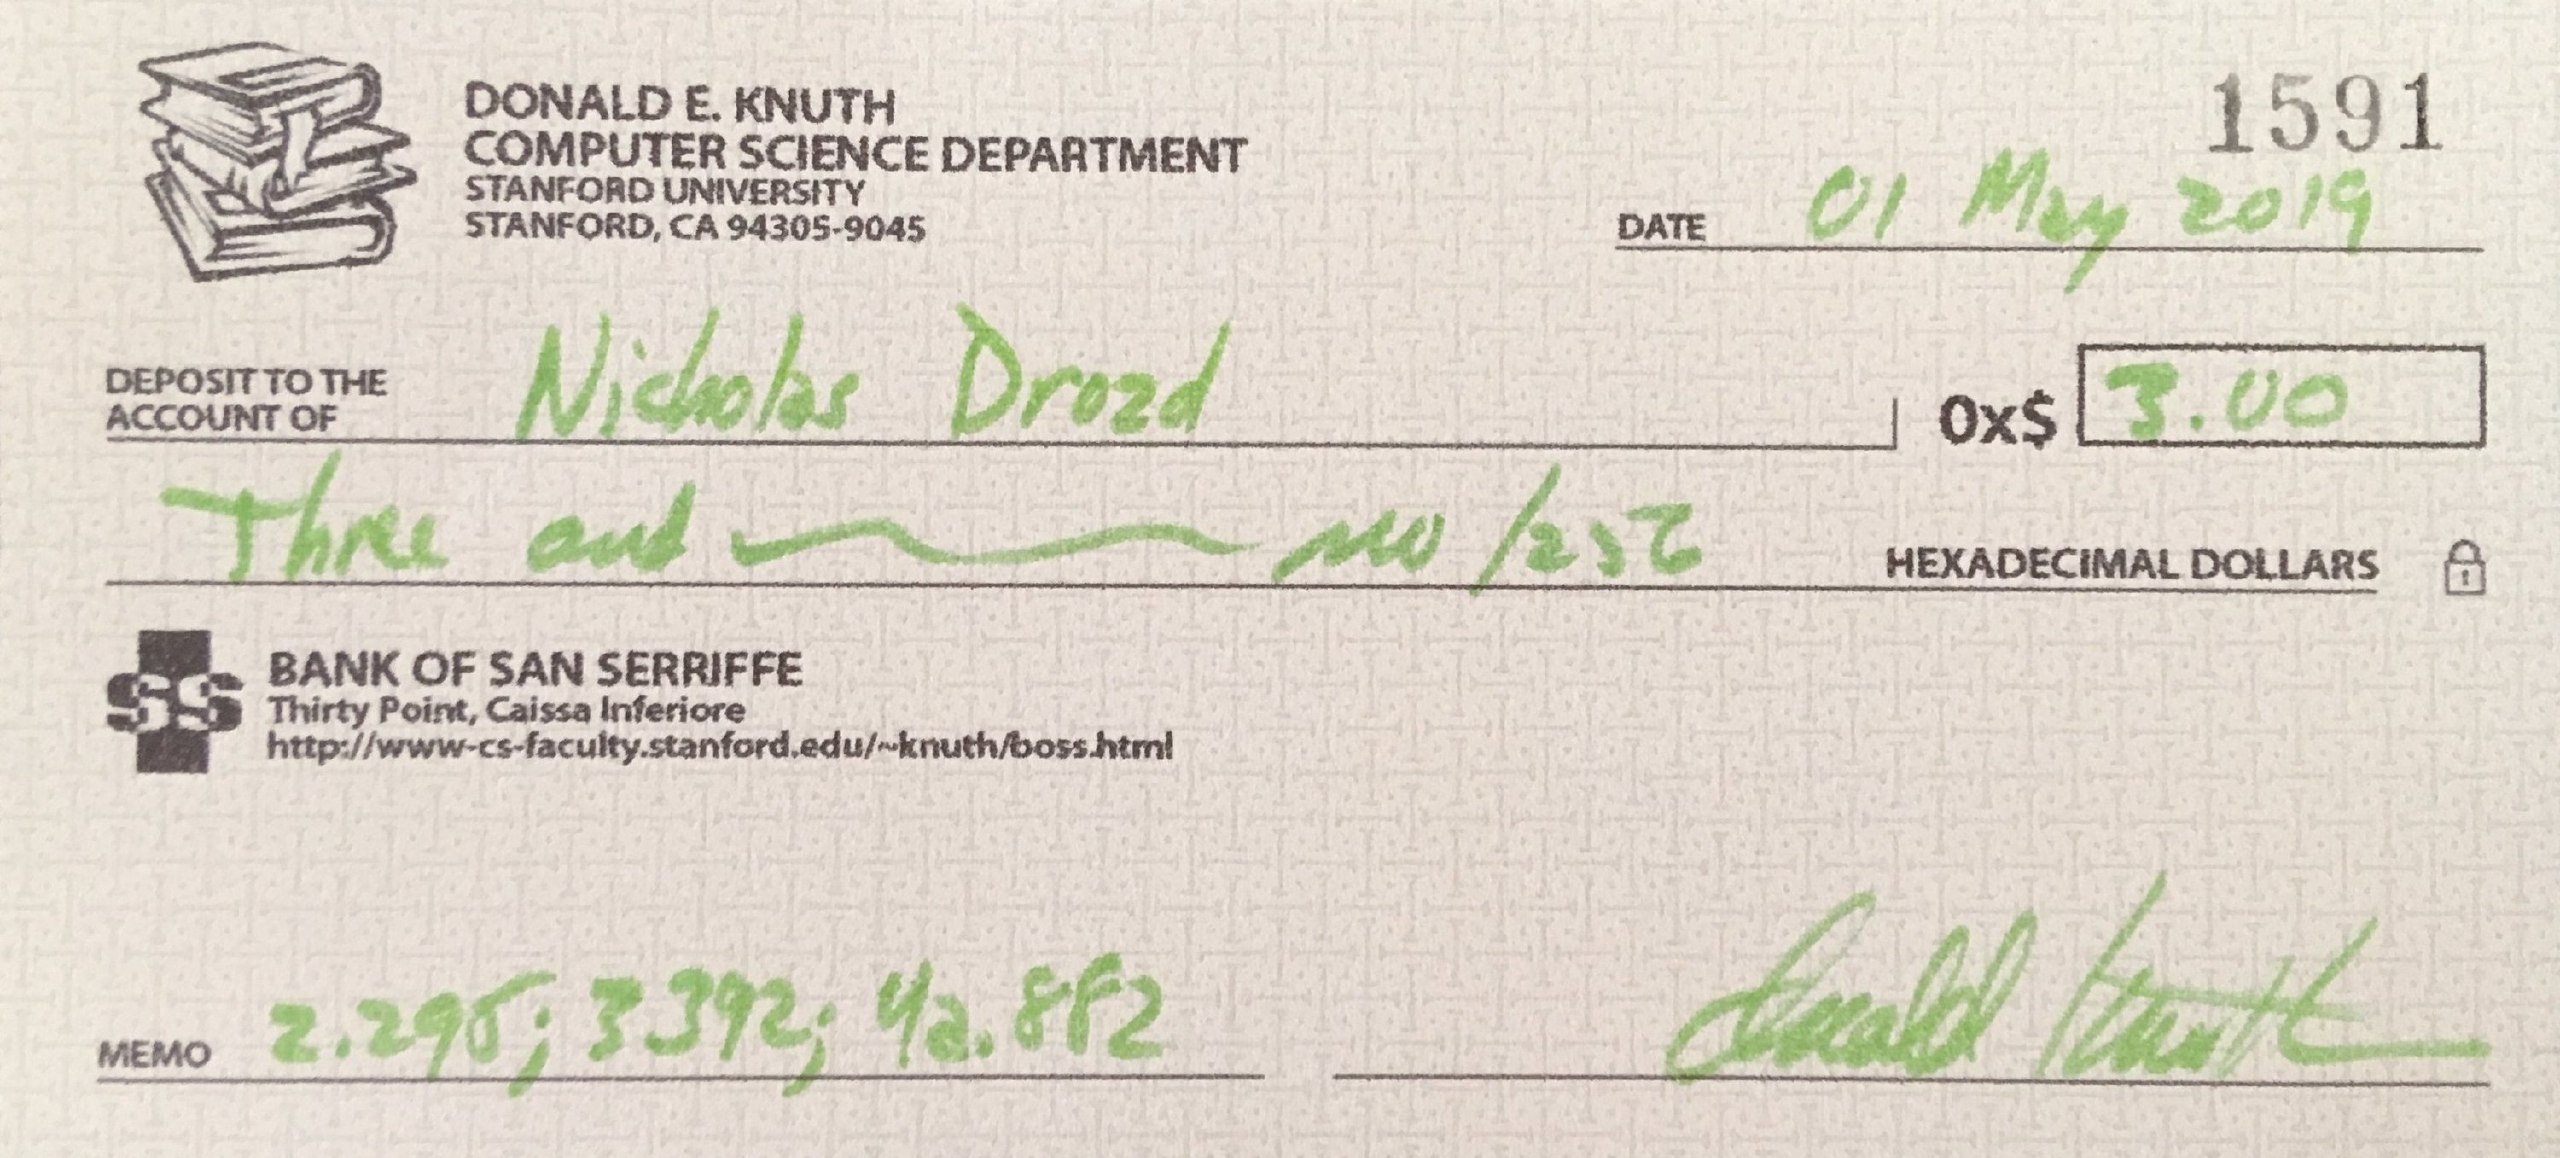 1591
DONALD E. KNUTH
COMPUTER SCIENCE DEPARTMENT
STANFORD UNIVERSITY
STANFORD, CA 94305-9045
DATE 01 May 2019
DEPOSIT TO THE
ACCOUNT OF Nicholas Drozd 0x$ 3.00
Three and no/256 HEXADECIMAL DOLLARS
SS BANK OF SAN SERRIFFE
Thirty Point, Caissa Inferiore
http://www-cs-faculty.stanford.edu/~knuth/boss.html
MEMO 2.295; 3.392; 4a.882 Donald Knuth